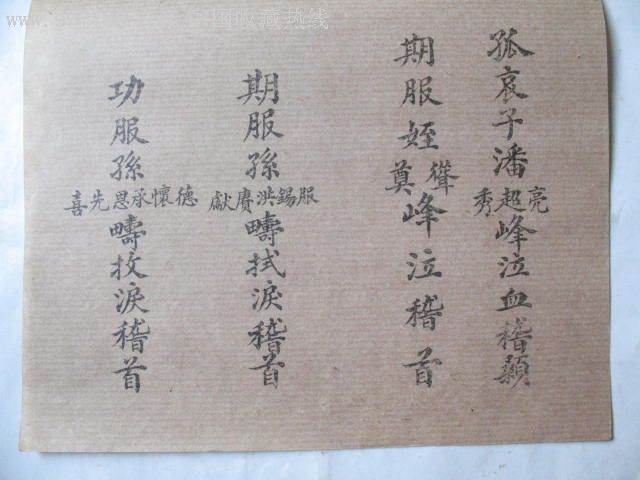 孤哀子潘亮超秀峰泣血稽顙
期服姪聳奠峰泣稽首
期服孫服錫洪賡獻疇拭淚稽首
功服孫德懷承恩先喜疇抆淚稽首
国收藏热线